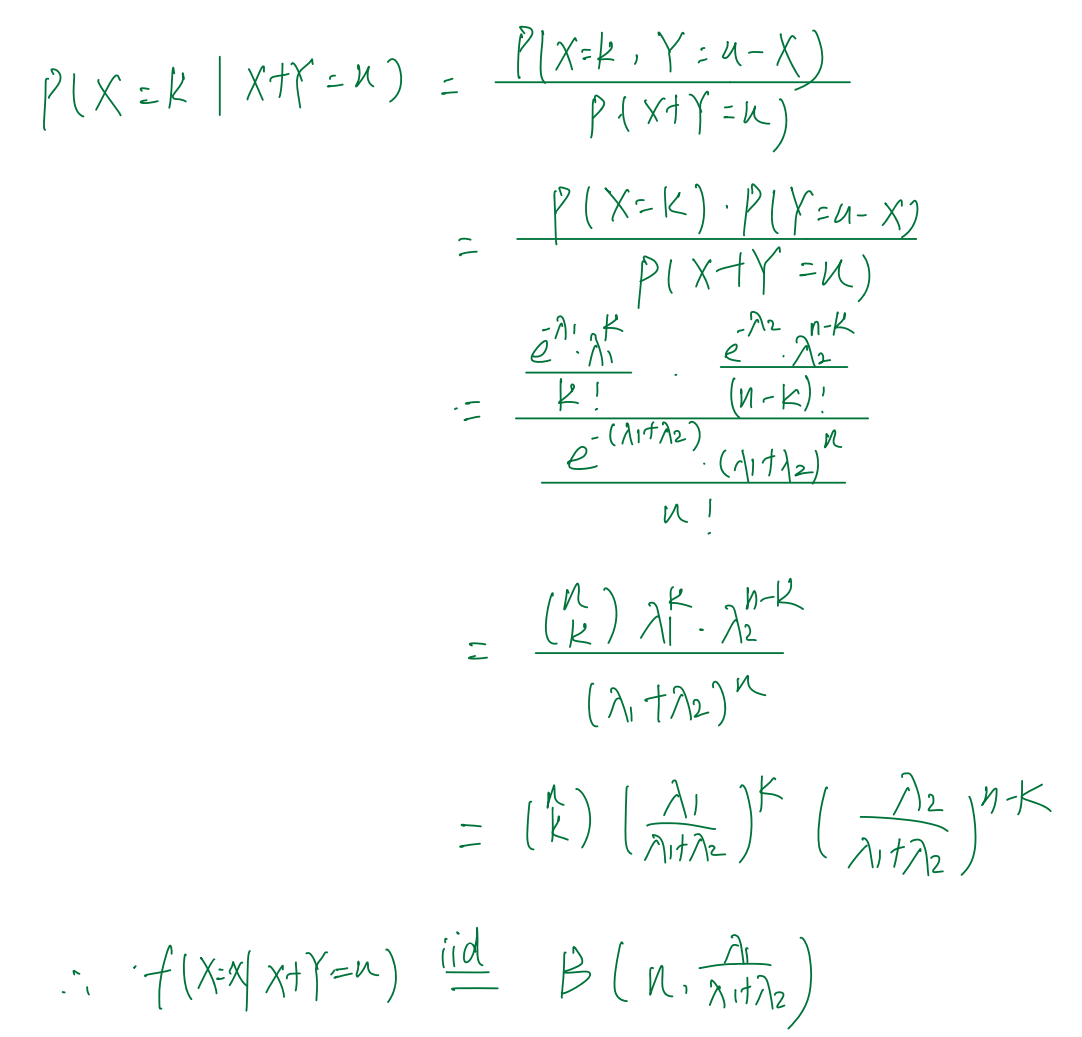 P(X=k | X+Y=n) = P(X=k, Y=n-X) / P(X+Y=n)
= P(X=k) · P(Y=n-X) / P(X+Y=n)
= (e^{-λ1} · λ1^k / k!) · (e^{-λ2} · λ2^{n-k} / (n-k)!) / (e^{-(λ1+λ2)} · (λ1+λ2)^n / n!)
= (n k) λ1^k · λ2^{n-k} / (λ1+λ2)^n
= (n k) (λ1 / λ1+λ2)^k (λ2 / λ1+λ2)^{n-k}
∴ f(X=x | X+Y=n) iid = B(n, λ1 / λ1+λ2)